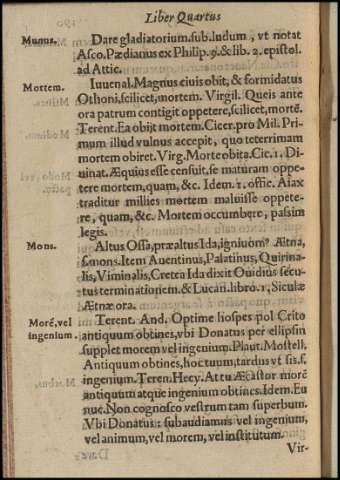 Liber Quartus
Munus. Dare gladiatorium. sub. ludum, vt notat
Asco. Pædianus ex Philip. 9. & lib. 2. epistol.
ad Attic.
Mortem. Iuuenal. Magnus ciuis obit, & formidatus
Othoni, scilicet, mortem. Virgil. Queis ante
ora patrum contigit oppetere, scilicet, mortē.
Terent. Ea obijt mortem. Cicer. pro Mil. Pri-
mum illud vulnus accepit, quo teterrimam
mortem obiret. Virg. Morte obita. Cic. 1. Di-
uinat. Æquius esse censuit, se maturam oppe-
tere mortem, quam, &c. Idem. 1. offic. Aiax
traditur millies mortem maluisse oppete-
re, quam, &c. Mortem occumbere, passim
legis.
Mons. Altus Ossa, præaltus Ida, igniuom⁹ Ætna,
s. mons. Item Auentinus, Palatinus, Quirina-
lis, Viminalis, Cretea Ida dixit Ouidius secu-
tus terminationem. & Lucan. libro. 1, Siculæ
Ætnæ ora.
Morē, vel Terent. And. Optime hospes pol Crito
ingenium. antiquum obtines, vbi Donatus per ellipsin
supplet morem vel ingenium. Plaut. Mostell.
Antiquum obtines, hoc tuum, tardus vt sis. s.
ingenium. Teren. Hecy. At tu Æcastor morē
antiquum atque ingenium obtines. Idem. Eu
nuc. Non cognosco vestrum tam superbum.
Vbi Donatus: subaudiamus vel ingenium,
vel animum, vel morem, vel institutum.
Vir-